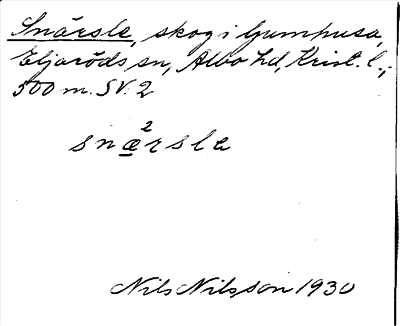 Snärsle, skog i Gumphusa,
Eljaröds sn, Albo hd, Krist. l.,
500 m. SV. 2
snæ²rsle
Nils Nilsson 1930